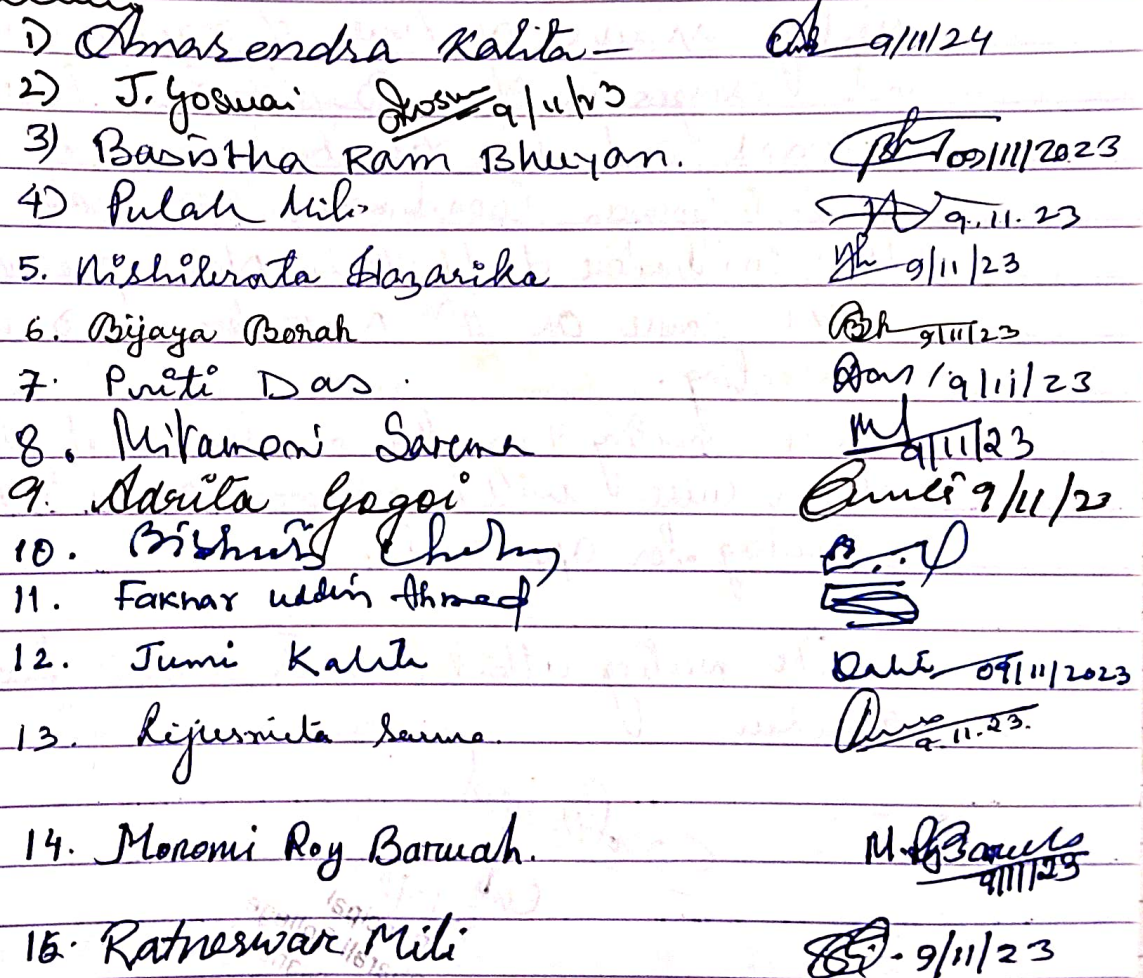 1) Amarendra Kalita – 9/11/24
2) J. Goswai 9/11/23
3) Basistha Ram Bhuyan. 09/11/2023
4) Pulak Mili 9.11.23
5. Hazarika 9/11/23
6. Bijaya Borah 9/11/23
7. Priti Das. 9/11/23
8. Mitamoni Sarma 9/11/23
9. Adrita Gogoi 9/11/23
10.
11. Faknar uddin Ahmed
12. Jumi Kalita 09/11/2023
13. 9.11.23.
14. Monomi Roy Baruah. M. Baruah
9/11/23
15. Ratneswar Mili 9/11/23